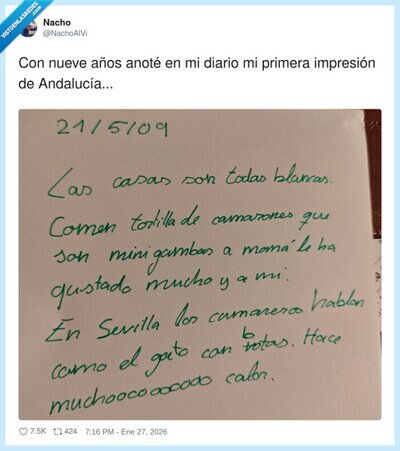 VISTOENLASREDES.COM
Nacho
@NachoAlVi
Con nueve años anoté en mi diario mi primera impresión
de Andalucía...
21/5/09
Las casas son todas blancas.
Comen tortilla de camarones que
son mini gambas a mamá le ha
gustado mucho y a mi.
En Sevilla los camareros hablan
como el gato con botas. Hace
muchoooooooooo calor.
7.5K 424 7:16 PM - Ene 27, 2026